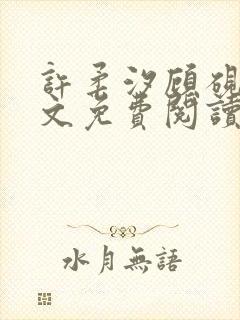 許柔汐顧硯
文免費閱讀
水月無語